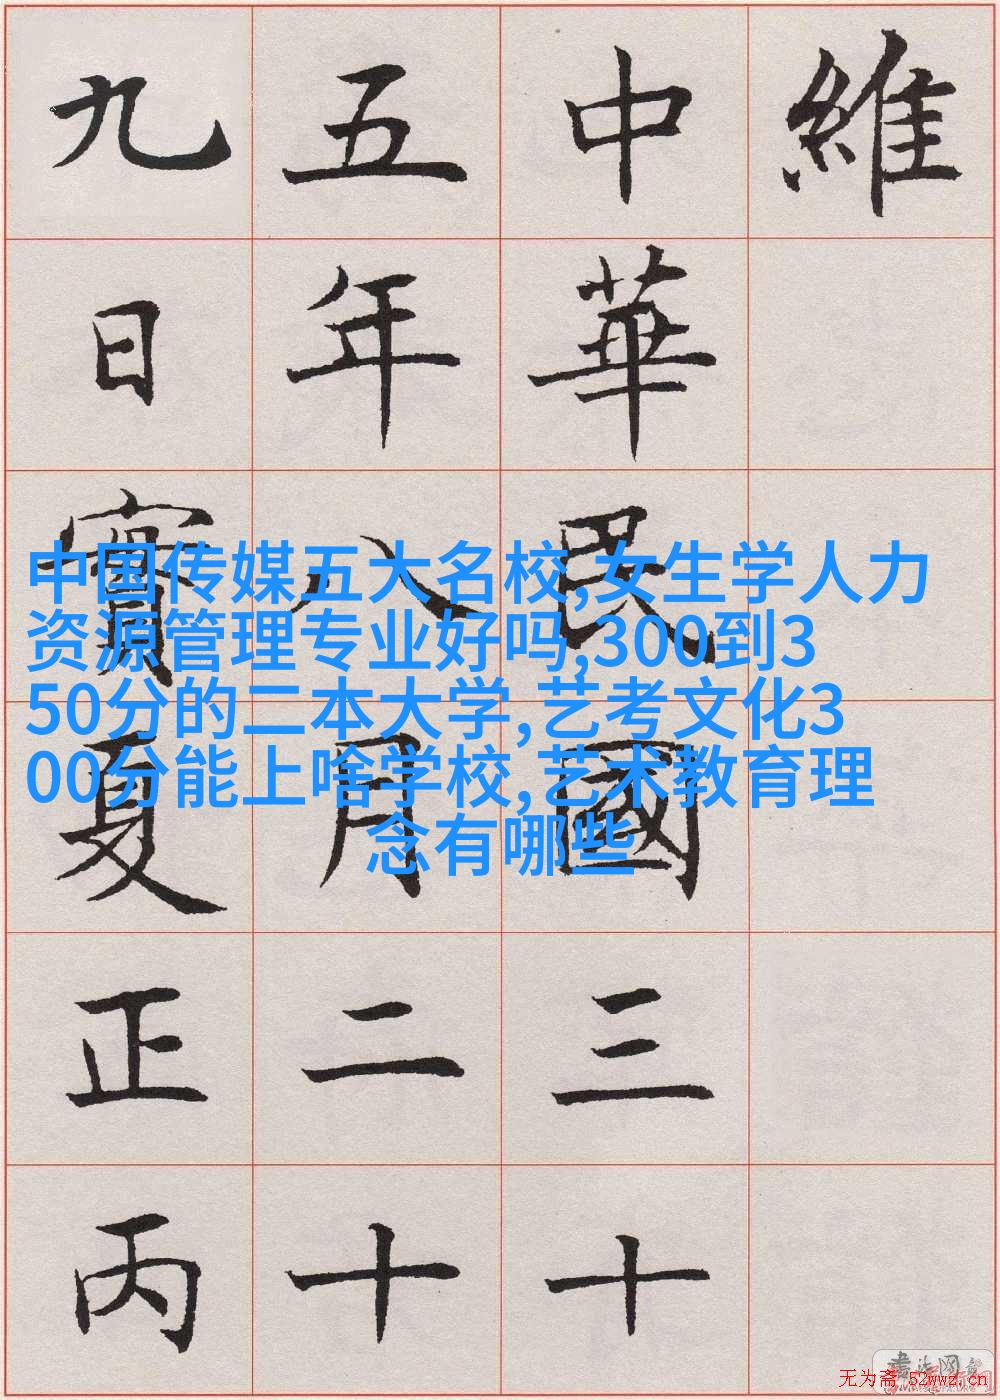 維
中華民國三十
五年八月二十
九日實夏正丙
中国传媒五大名校,女生学人力
资源管理专业好吗,300到3
50分的二本大学,艺考文化3
00分能上啥学校,艺术教育理
念有哪些
无为斋 52wwz.cn